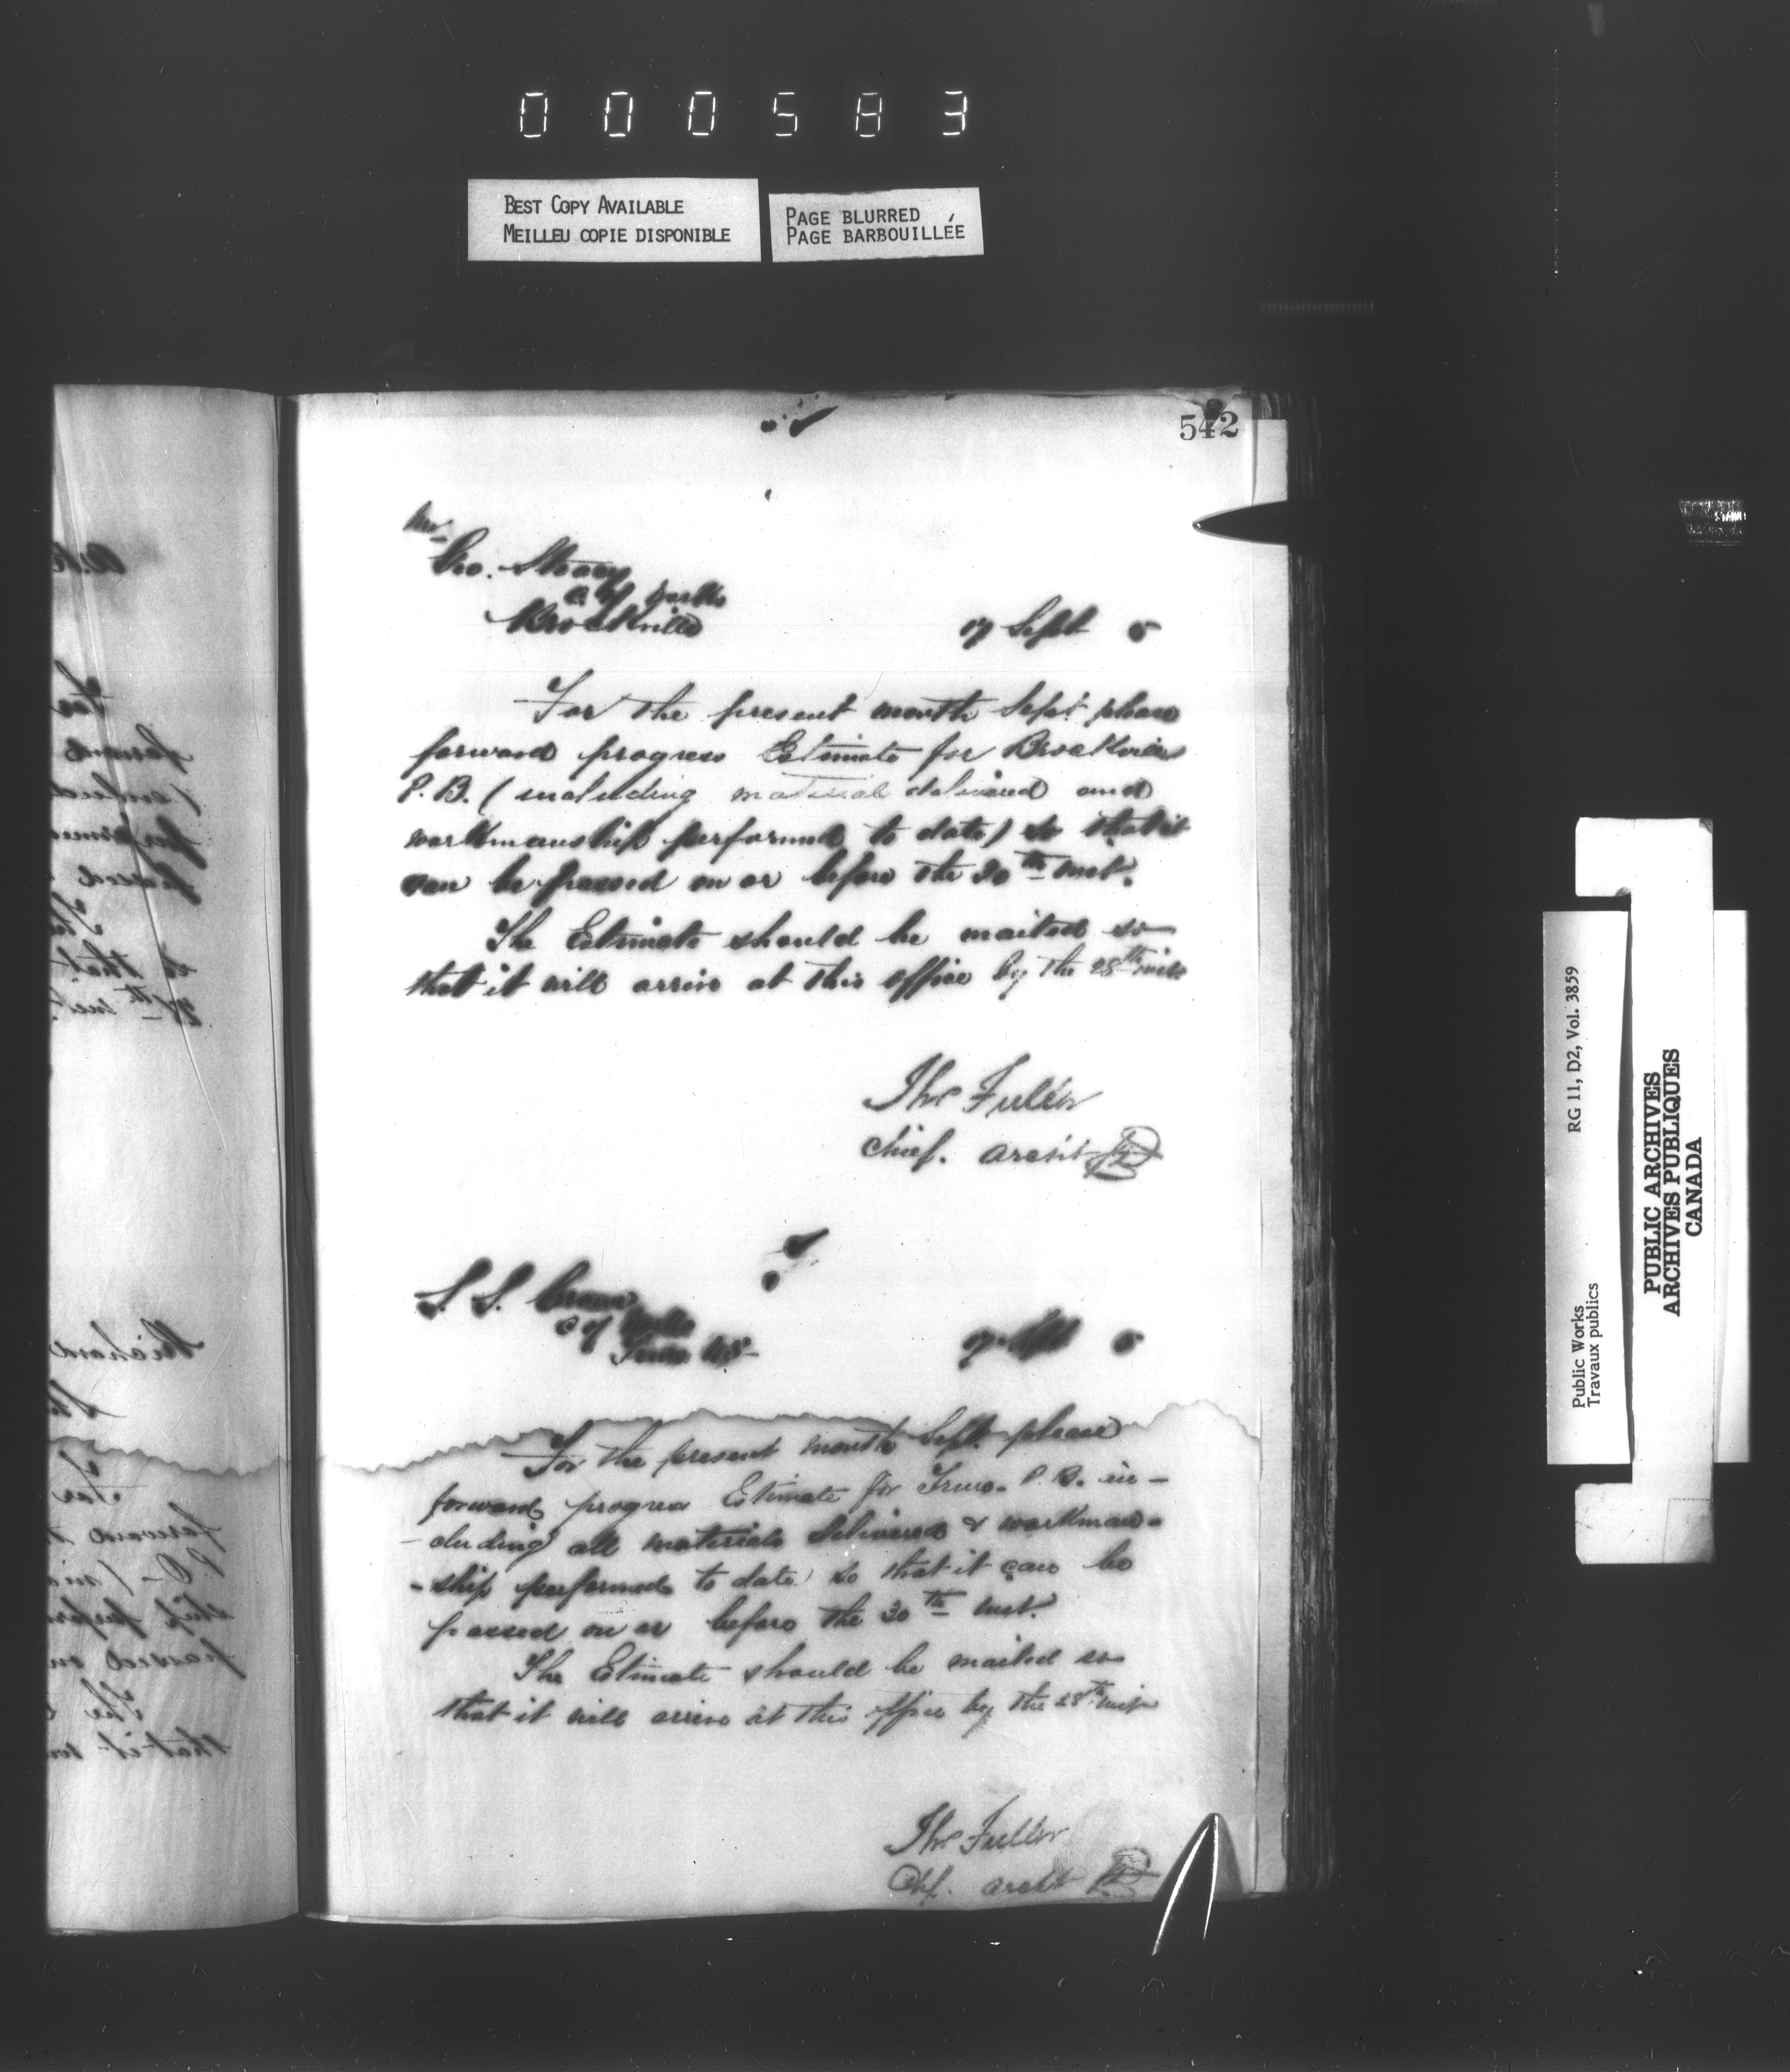 000583
BEST COPY AVAILABLE
MEILLEU COPIE DISPONIBLE
PAGE BLURRED
PAGE BARBOUILLÉE
542
Mr
Geo. Steacy
C. of Works
Brockville
17 Sept 5
For the present month Sept. please
forward progress Estimate for Brockville
P. B. (including material delivered and
workmanship performed to date) so that it
can be passed on or before the 30th inst.
The Estimate should be mailed so
that it will arrive at this office by the 28th inst
Thos Fuller
Chief. Archt
S. S.
C of Works
Truro NS
17 Sept 5
For the present month Sept. please
forward progress Estimate for Truro. P. B. in-
-cluding all materials delivered & workman-
-ship performed to date so that it can be
passed on or before the 30th inst.
The Estimate should be mailed so
that it will arrive at this office by the 28th inst
Thos Fuller
Chf. Archt
RG 11, D2, Vol. 3859
Public Works
Travaux publics
PUBLIC ARCHIVES
ARCHIVES PUBLIQUES
CANADA